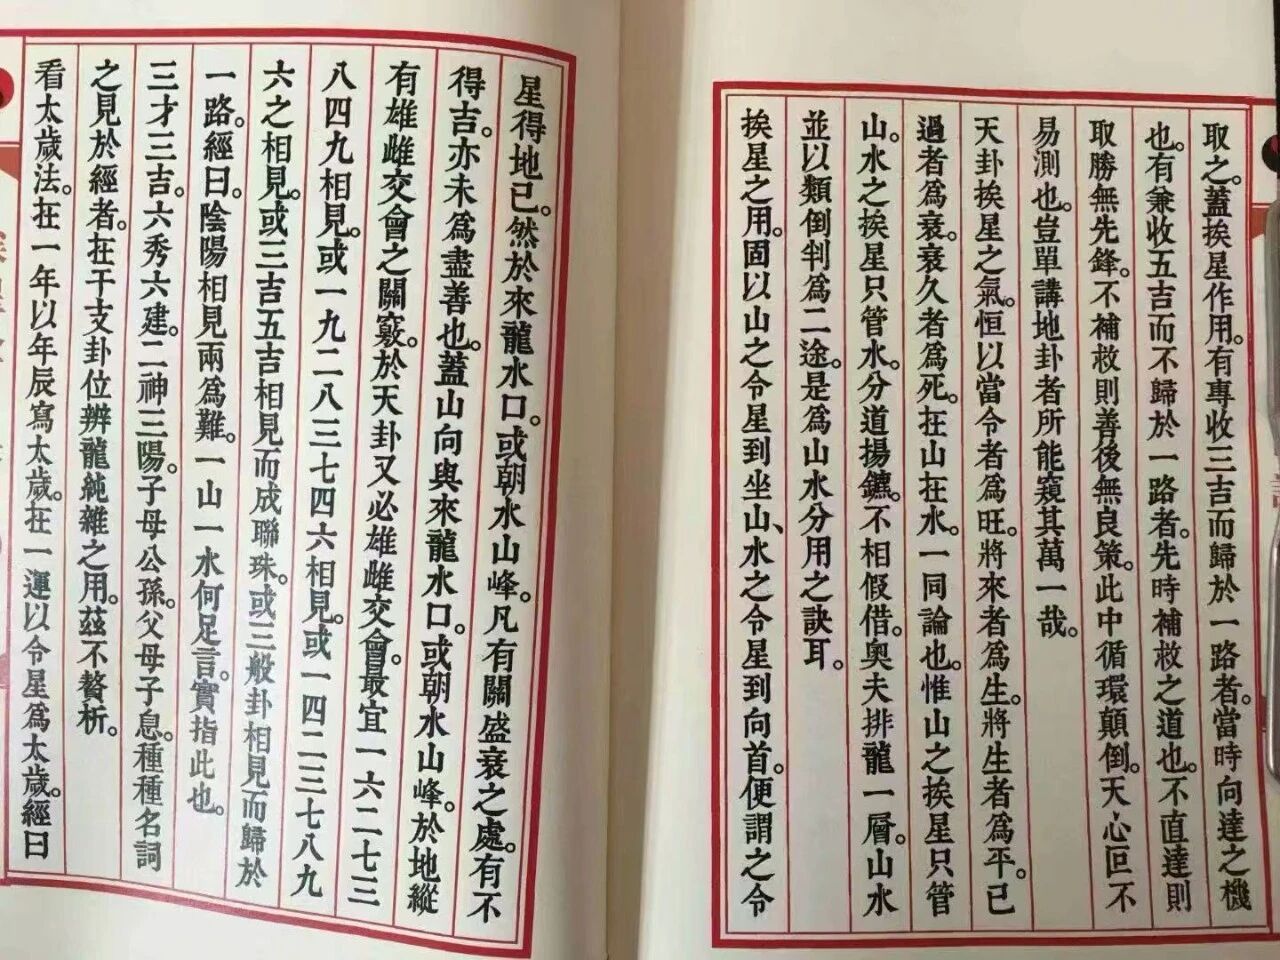 取之。蓋挨星作用。有專收三吉而歸於一路者。當時向達之機
也。有兼收五吉而不歸於一路者。先時補救之道也。不直達則
取勝無先鋒。不補救則善後無良策。此中循環顛倒。天心叵不
易測也。豈單講地卦者所能窺其萬一哉。
天卦挨星之氣。恒以當令者為旺。將來者為生。將生者為平。已
過者為衰。衰久者為死。在山在水。一同論也。惟山之挨星只管
山。水之挨星只管水。分道揚鑣。不相假借。奧夫排龍一層。山水
並以類倒判為二途。是為山水分用之訣耳。
挨星之用。固以山之令星到坐山、水之令星到向首。便謂之令
星得地已。然於來龍水口。或朝水山峰。凡有關盛衰之處。有不
得吉。亦未為盡善也。蓋山向與來龍水口。或朝水山峰。於地縱
有雄雌交會之關竅。於天卦又必雄雌交會。最宜一六二七三
八四九相見。或一九二八三七四六相見。或一四二三七八九
六之相見。或三吉五吉相見而成聯珠。或三般卦相見而歸於
一路。經曰。陰陽相見兩為難。一山一水何足言。實指此也。
三才三吉。六秀六建。二神三陽。子母公孫。父母子息。種種名詞
之見於經者。在干支卦位辨龍純雜之用。茲不贅析。
看太歲法。在一年以年辰寫太歲。在一運以令星為太歲。經曰